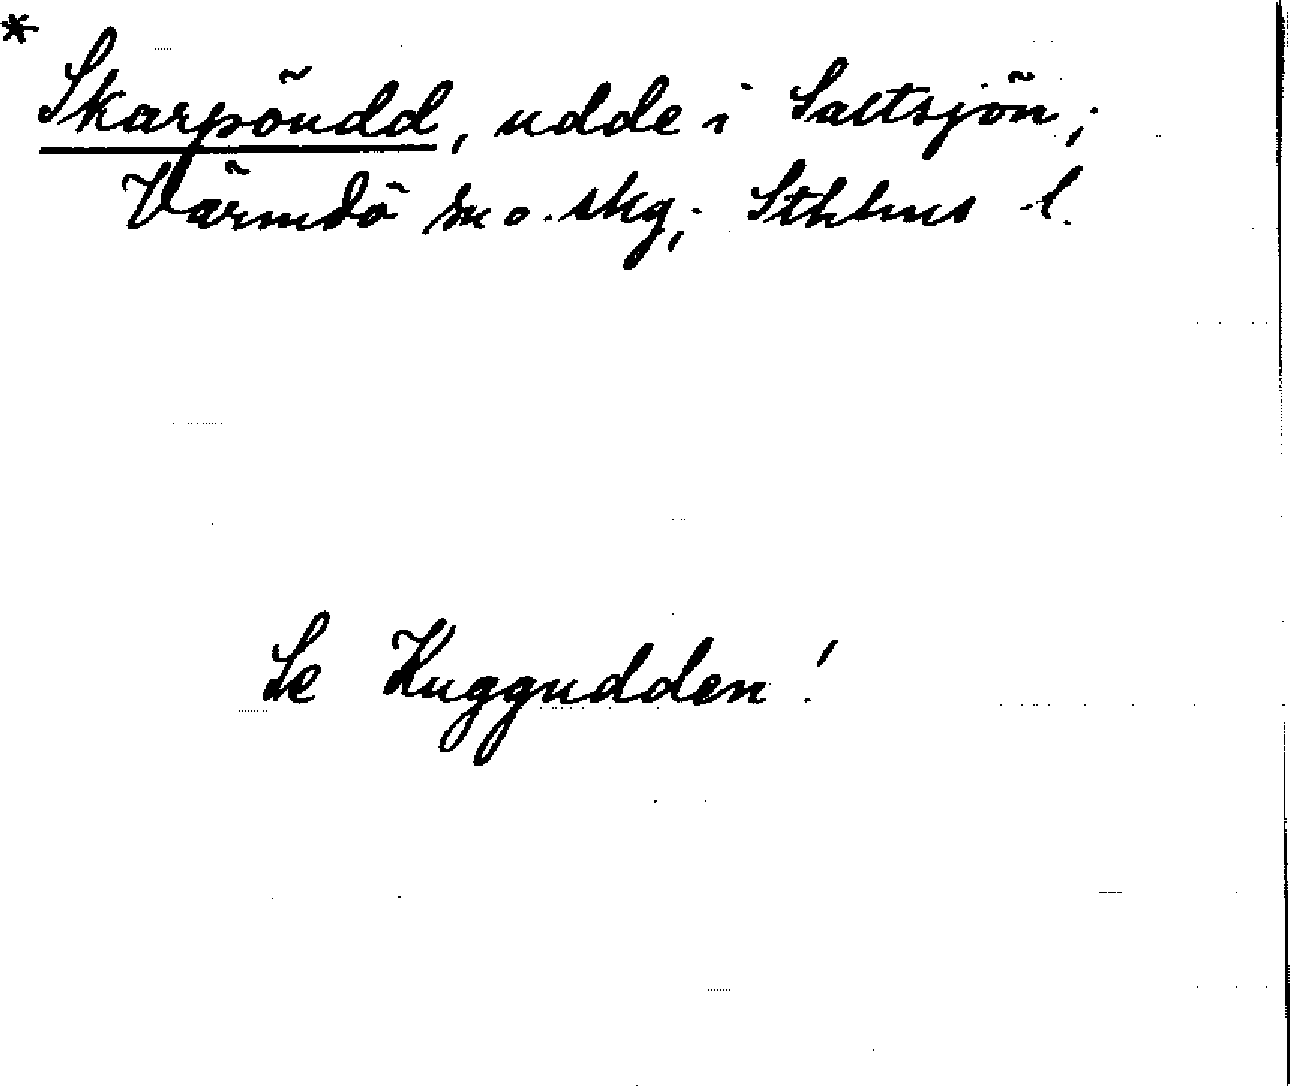 * Skarpöudd, udde i Saltsjön,
Värmdö sn o. skg, Sthlms l.
Se Kuggudden!